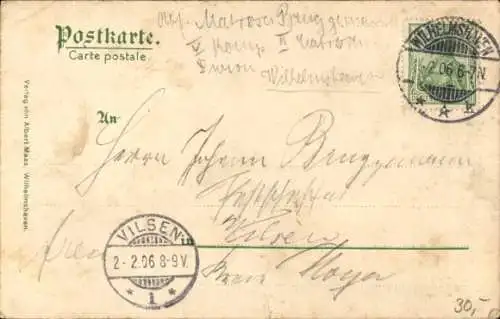 Postkarte.
Carte postale.
Abs. Matrose Bruggemann
V Komp. II Matrosen
Division
Wilhelmshaven
WILHELMSHAVEN
2.06 6-7N.
* k
An
Herrn Johann Bruggemann
Vilsen
Kreis Hoya
VILSEN
2-2.06 8-9V.
* 1 *
Verlag von Albert Maas, Wilhelmshaven.
30,-